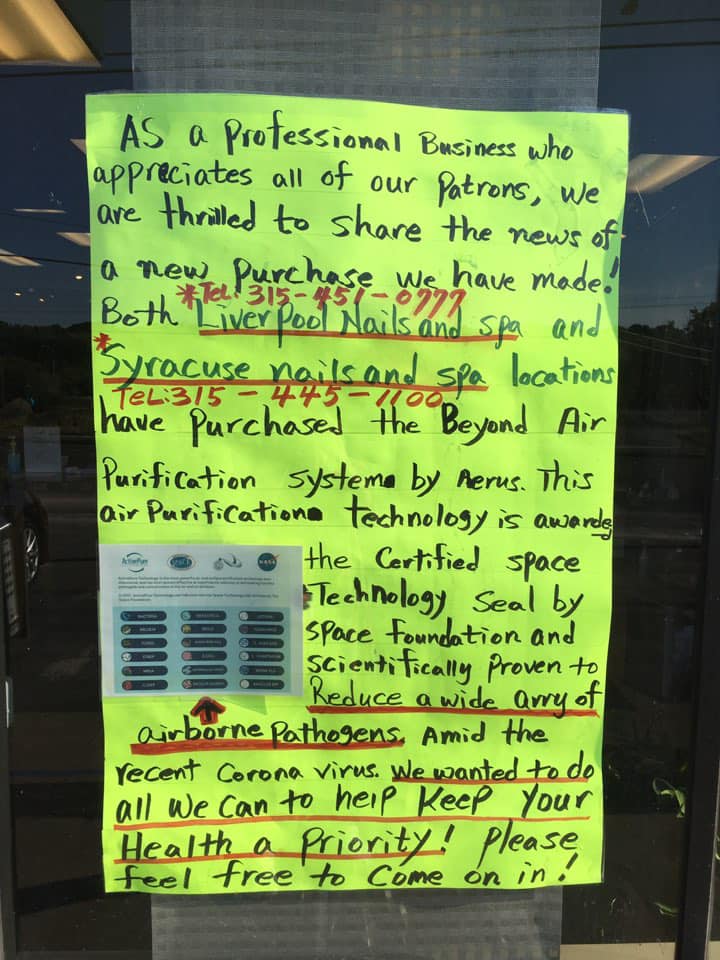 AS a Professional Business who
appreciates all of our Patrons, we
are thrilled to share the news of
a new purchase we have made!
*Tel: 315-451-0777
Both Liverpool Nails and spa and
*Syracuse nails and spa locations
TeL:315-445-1100
have Purchased the Beyond Air
Purification systems by Aerus. This
air Purification technology is awarded
the Certified space
Technology Seal by
space foundation and
scientifically Proven to
Reduce a wide arry of
airborne Pathogens. Amid the
recent Corona virus. We wanted to do
all we can to help Keep Your
Health a Priority! Please
feel free to Come on in!
ActivePure
NASA
BACTERIA